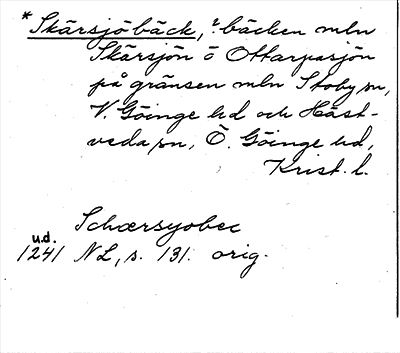 *Skärsjöbäck, ?: bäcken mln
Skärsjön o Ottarpasjön
på gränsen mln Stoby sn,
V. Göinge hd och Häst-
veda sn, Ö. Göinge hd,
Krist. l.
Schærsyobec
u.d.
1241 NL, s. 131. orig.